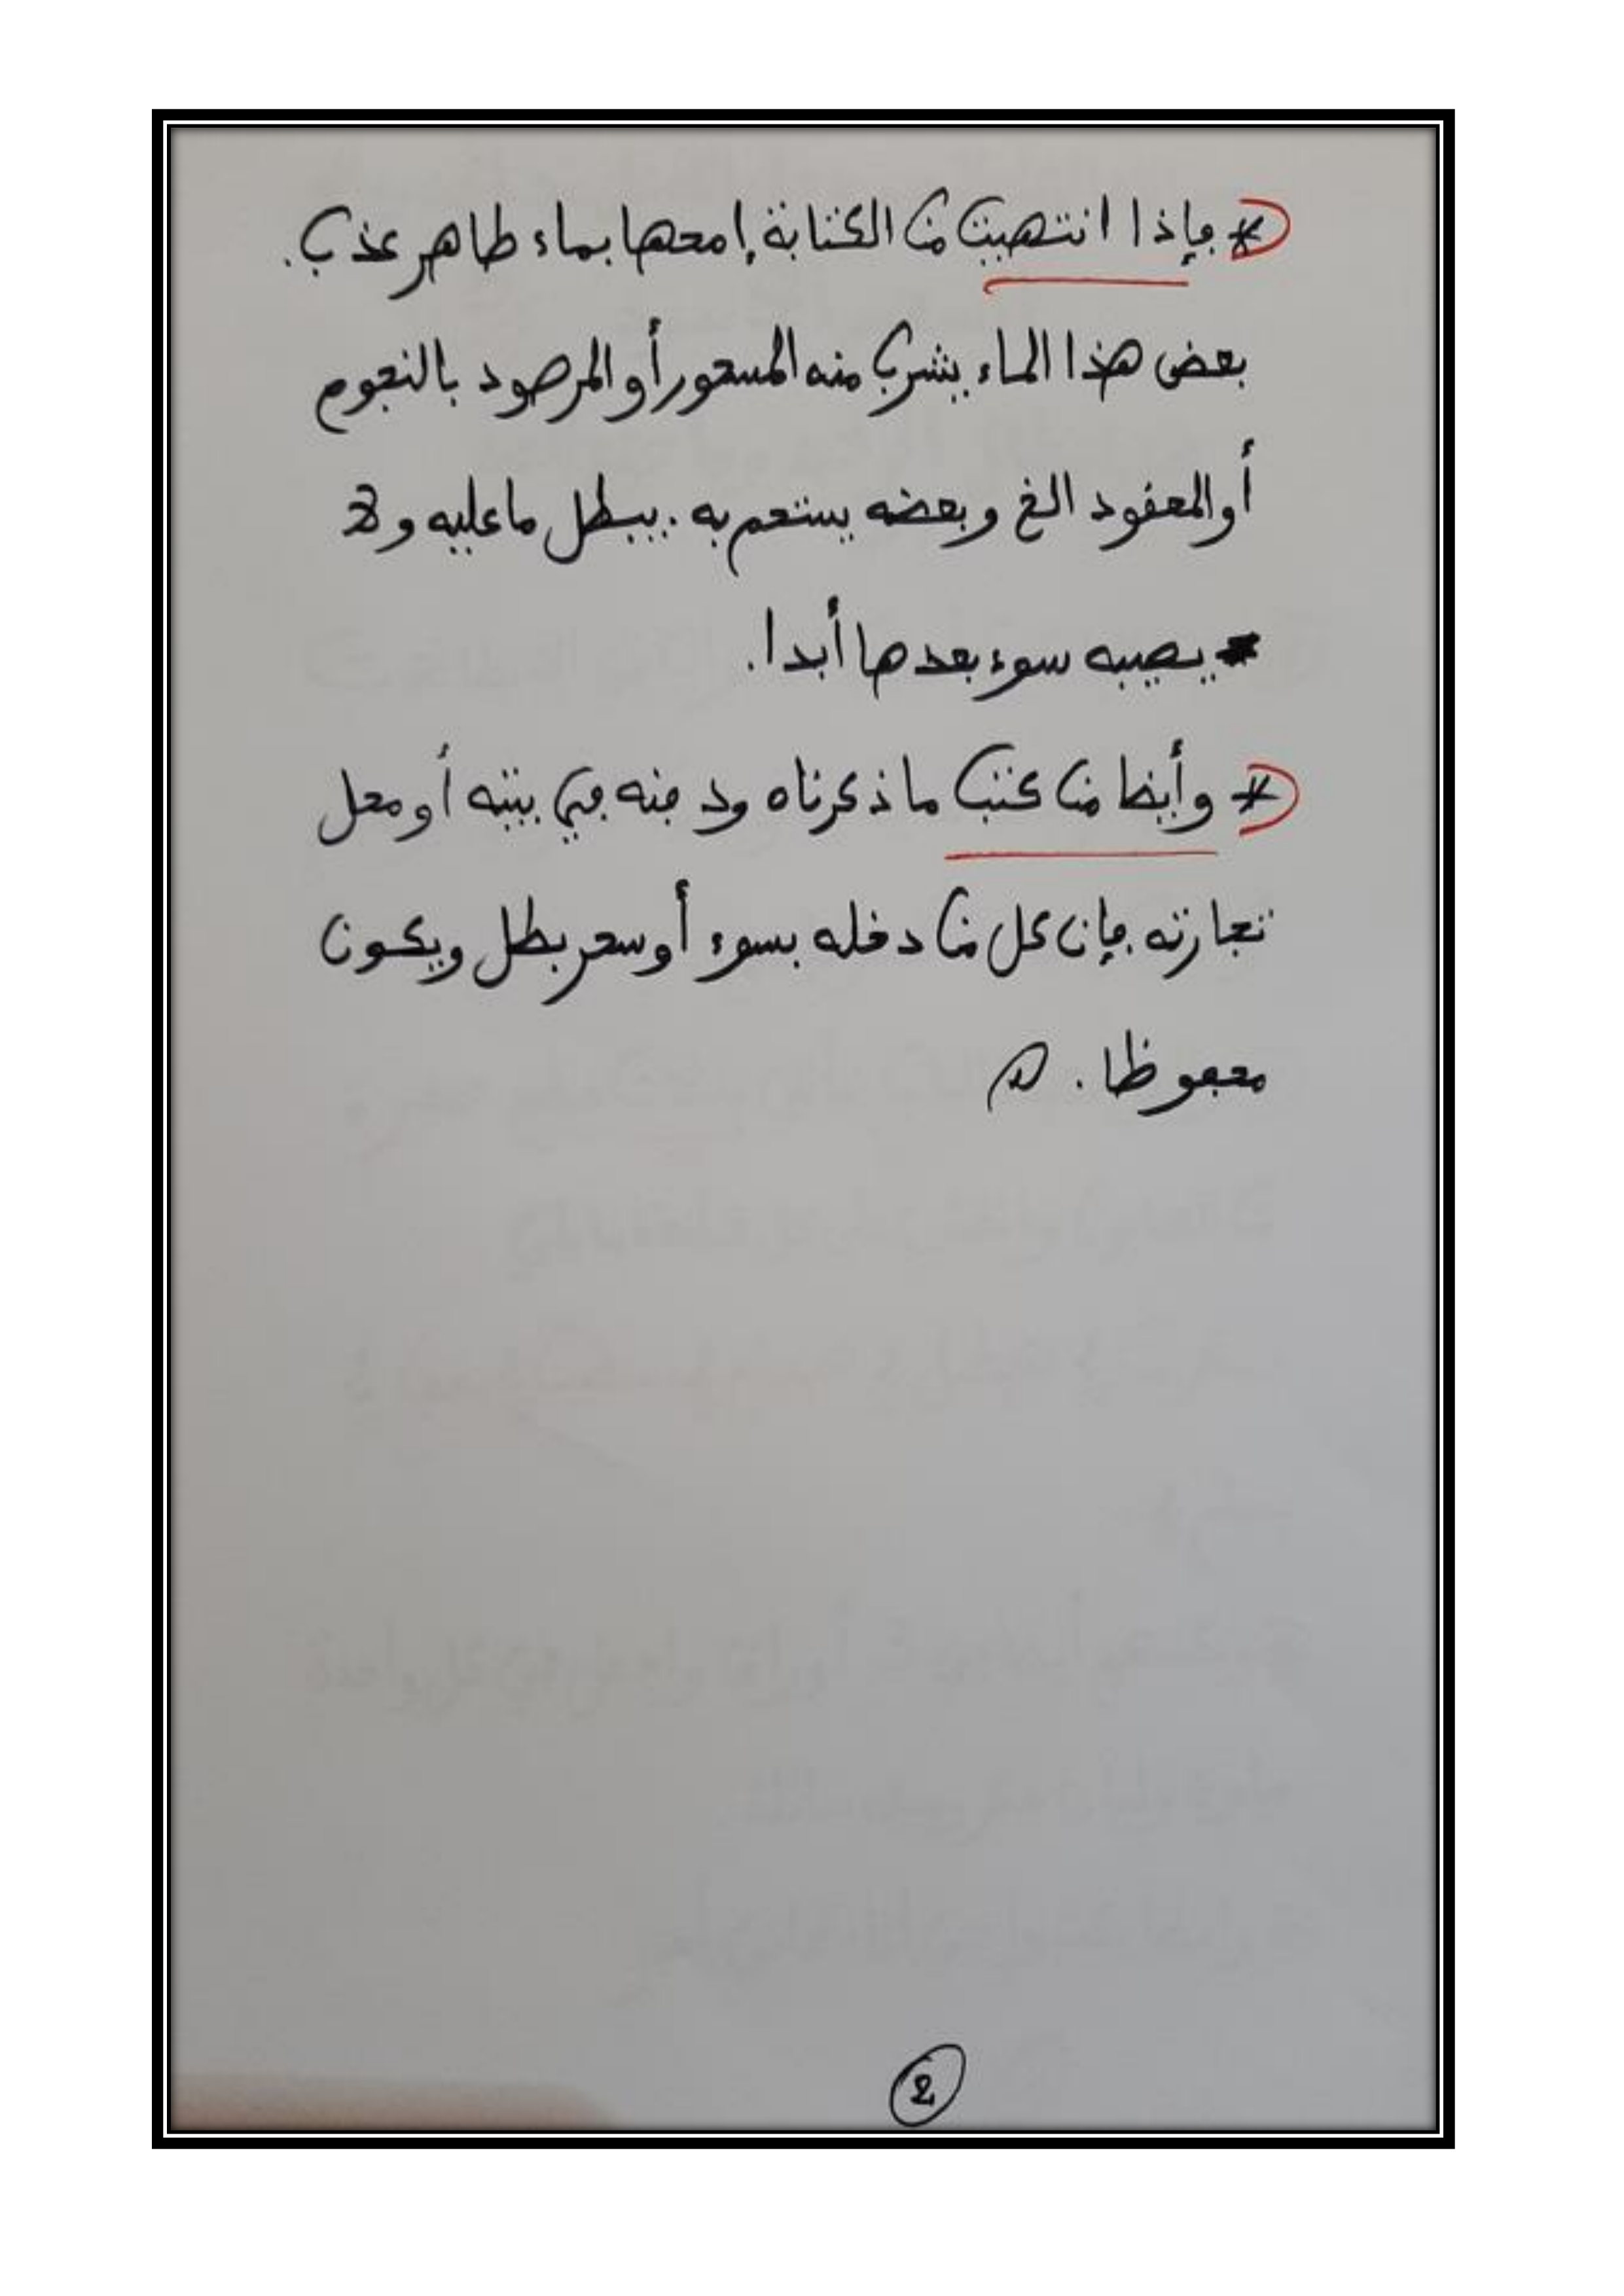 * فإذا انتهيت من الكتابة إمحها بماء طاهر عذب.
بعض هذا الماء يشرب منه المسحور أو المرصود بالنجوم
أو المعقود الخ وبعضه يستحم به. يبطل ما عليه ولا
يصيبه سوء بعدها أبدا.
* وأيضا من كتب ما ذكرناه ودفنه في بيته أو محل
تجارته فإن كل من دخله بسوء أو سحر بطل ويكون
محفوظا.
2